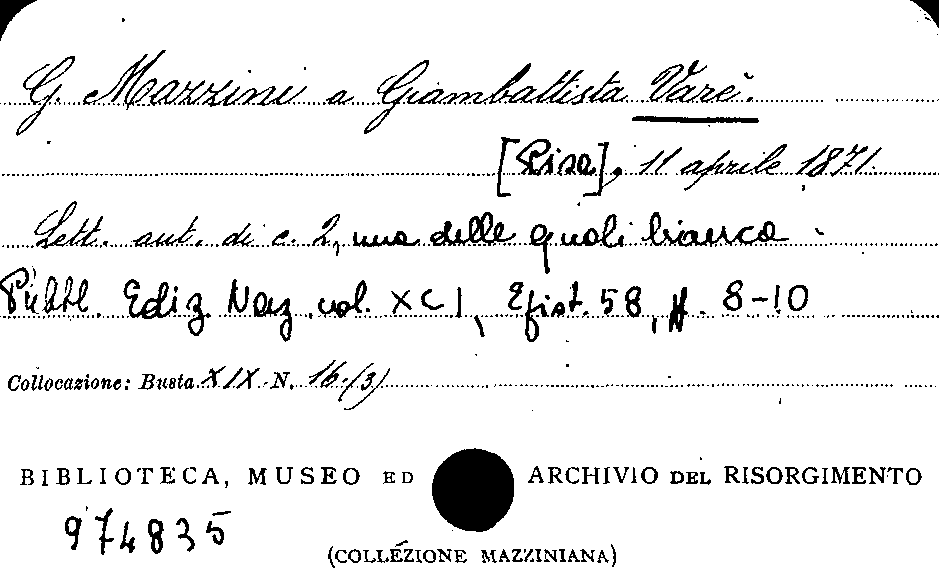 G. Mazzini a Giambattista Varè.
[Pisa], 11 aprile 1871.
Lett. aut. di c. 2, una delle quali bianca.
Pubbl. Ediz. Naz. vol. XCI, Epist. 58, pp. 8-10
Collocazione: Busta XIX N. 16 (3)
BIBLIOTECA, MUSEO ED ARCHIVIO DEL RISORGIMENTO
974835
(COLLEZIONE MAZZINIANA)